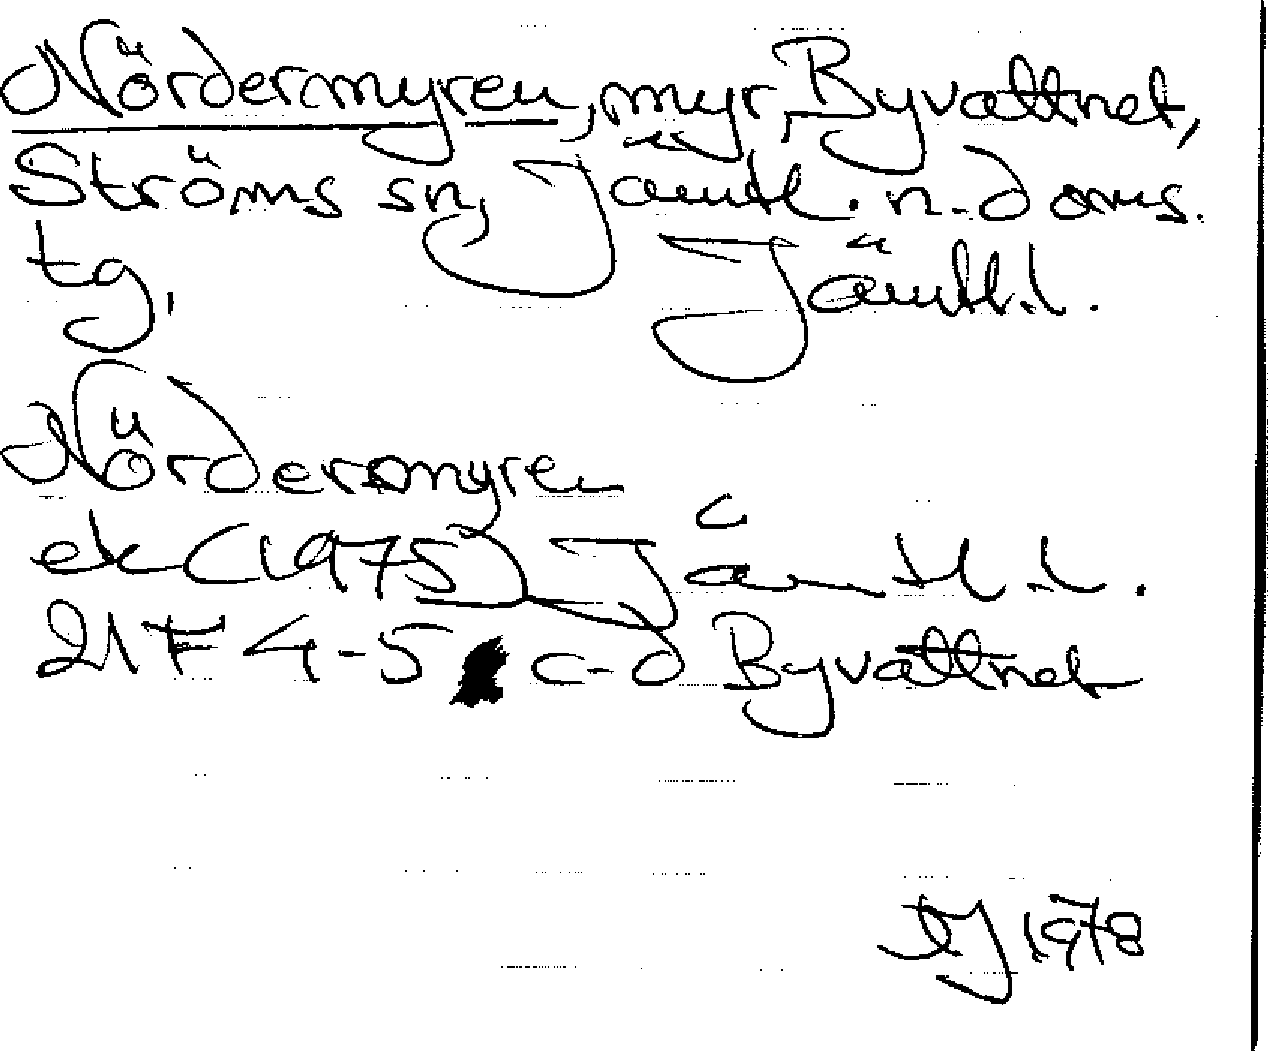 Nördermyren, myr, Byvattnet,
Ströms sn, Jämtl. n. doms.
tg, Jämtl.l.
Nördermyren
ek (1975) Jämtl.l.
21F 4-5 c-d Byvattnet
1978